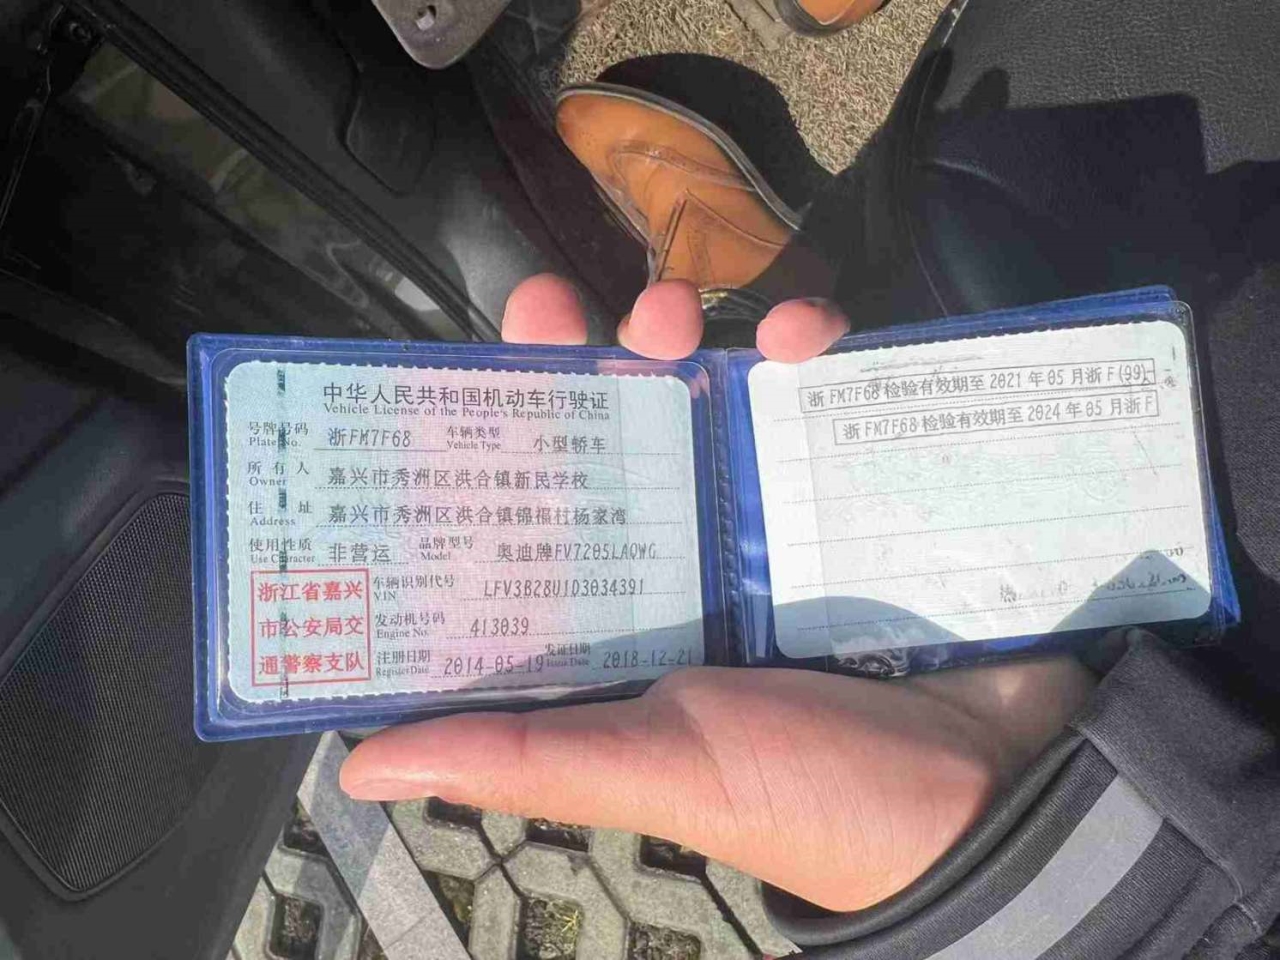 中华人民共和国机动车行驶证
Vehicle License of the People's Republic of China
号牌号码 浙FM7F68 车辆类型 小型轿车
Plate No. Vehicle Type
所有人 嘉兴市秀洲区洪合镇新民学校
Owner
住址 嘉兴市秀洲区洪合镇锦福村杨家湾
Address
使用性质 非营运 品牌型号 奥迪牌FV7205LAQWG
Use Character Model
浙江省嘉兴
市公安局交
通警察支队
车辆识别代号 LFV3B28U1D3034391
VIN
发动机号码 413039
Engine No.
注册日期 2014-05-19 发证日期 2018-12-21
Register Date Issue Date
浙FM7F68检验有效期至2021年05月浙F(99)
浙FM7F68检验有效期至2024年05月浙F